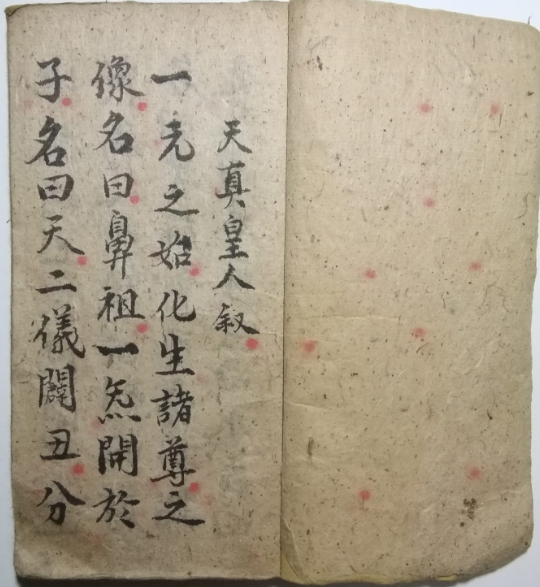 天真皇人叙
一元之始化生諸尊之
像名曰鼻祖一炁開於
子名曰天二儀闢丑分